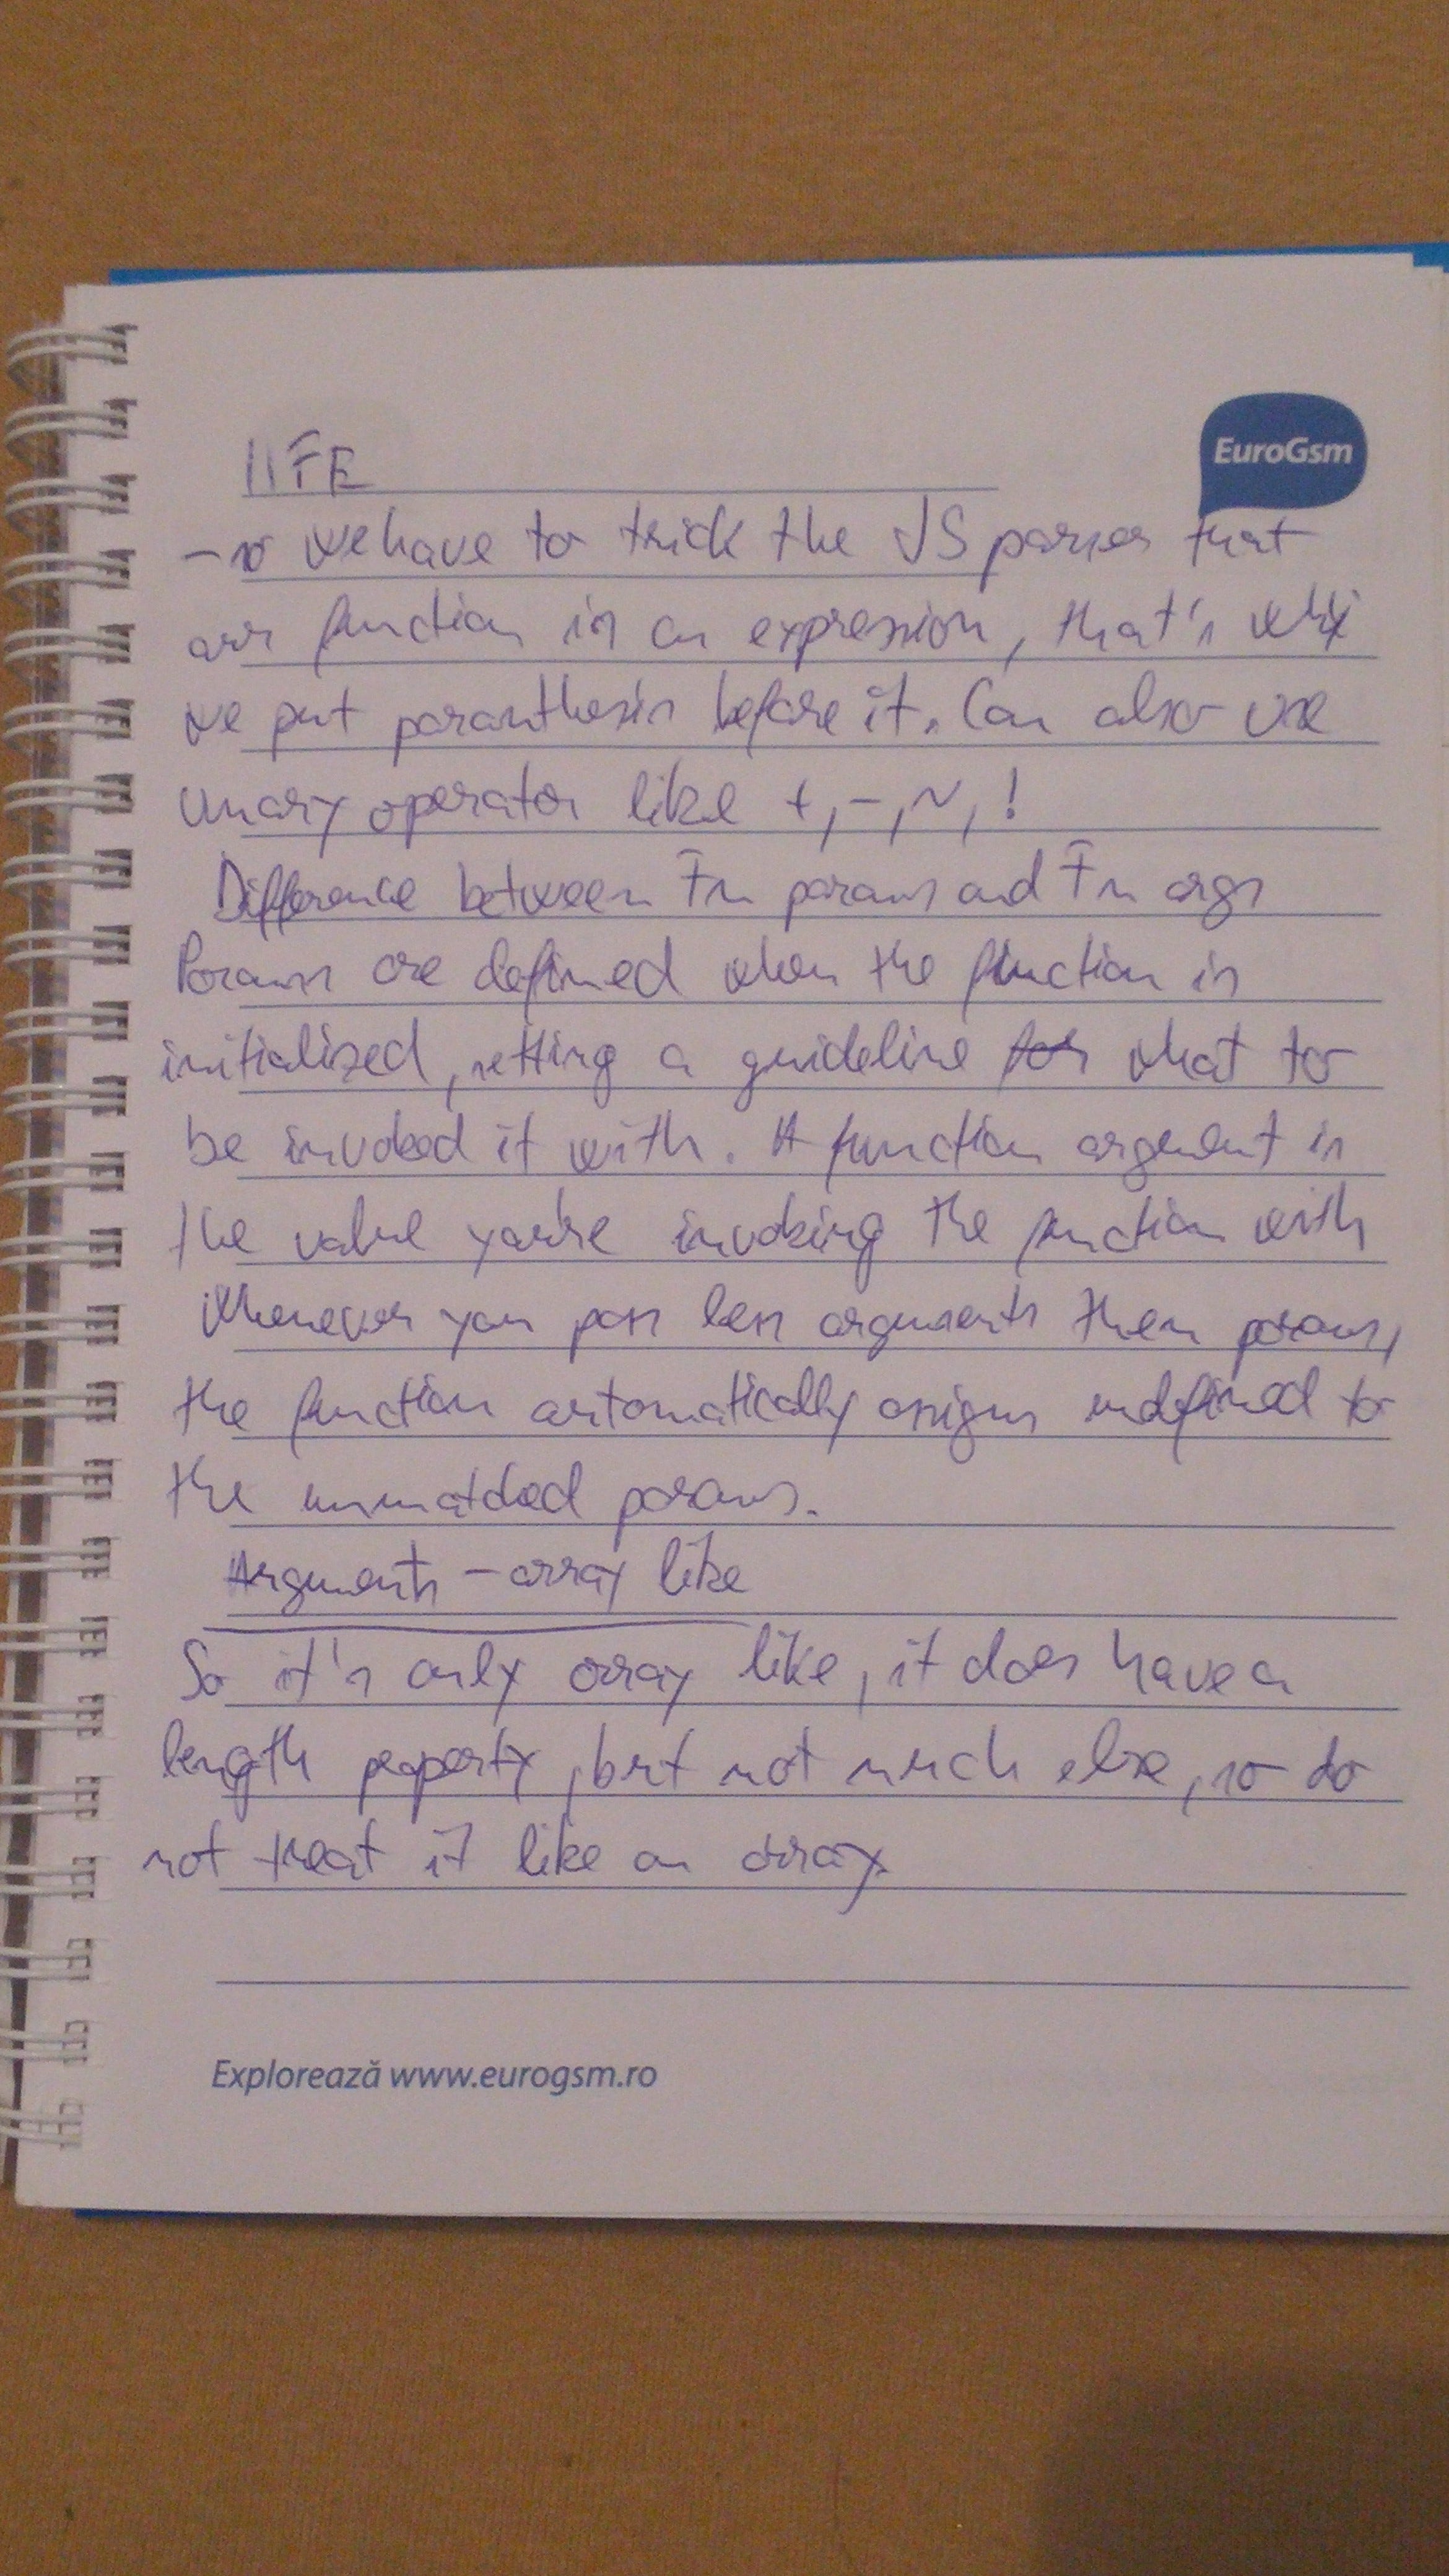 IIFE
EuroGsm
- so we have to trick the JS parser that
our function is an expression, that's why
we put paranthesis before it. Can also use
unary operator like +,-,~,!
Difference between Fn params and Fn args
Params are defined when the function is
initialized, setting a guideline for what to
be invoked it with. A function argument is
the value you're invoking the function with
Whenever you pass less arguments then params,
the function automatically assigns undefined to
the unmatched params.
Arguments - array like
So it's only array like, it does have a
length property, but not much else, so do
not treat it like an array.
Explorează www.eurogsm.ro